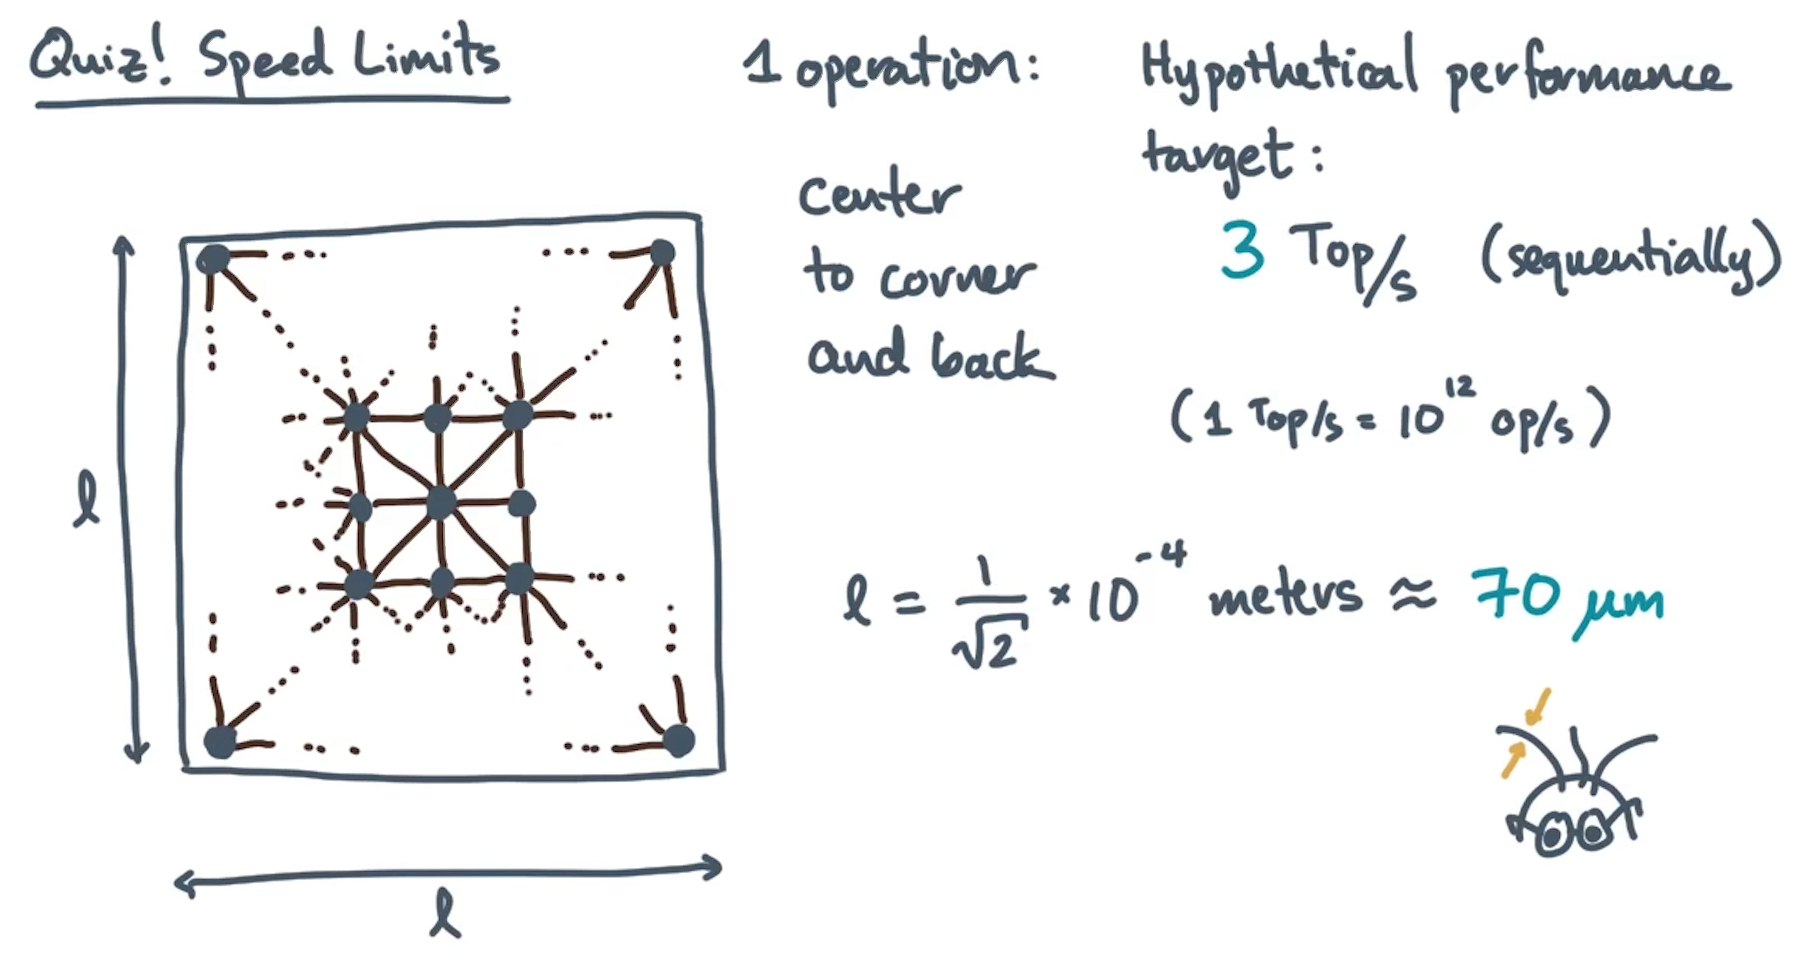 Quiz! Speed Limits
1 operation:
center
to corner
and back
Hypothetical performance
target:
3 Top/s (sequentially)
(1 Top/s = 10^12 op/s)
l
l = 1/√2 × 10^-4 meters ≈ 70 μm
l